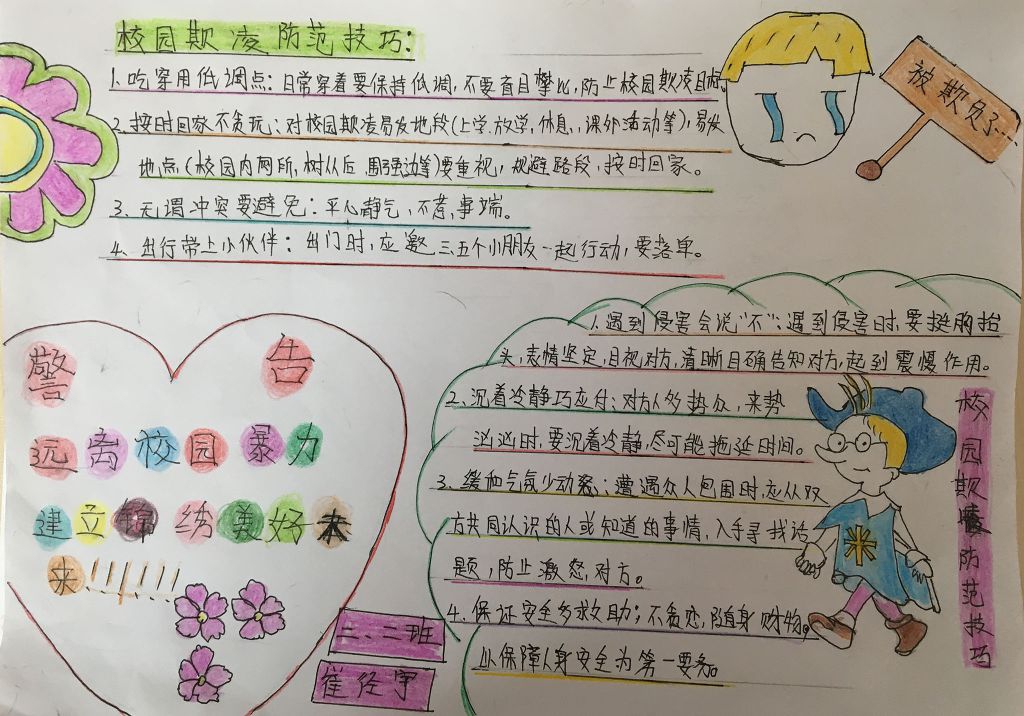 校园欺凌防范技巧:
1. 吃穿用低调点:日常穿着要保持低调,不要盲目攀比,防止校园欺凌目标。
2. 按时回家不贪玩:对校园欺凌易发地段(上学.放学,休息,,课外活动等),易发
地点(校园内厕所,树从后 围强边等)要重视,规避路段,按时回家。
3. 无谓冲突要避免:平心静气,不惹事端。
4、出行带上小伙伴:出门时,应邀三五个小朋友一起行动,要落单。
被欺负了…
警告
远离校园暴力
建立锦绣美好未
来!!!!!!
二、二班
崔径宇
1.遇到侵害会说"不":遇到侵害时,要挺胸抬
头,表情坚定,目视对方,清晰目确告知对方,起到震慑作用。
2、沉着冷静巧应付:对方人多势众,来势
汹汹时,要沉着冷静,尽可能拖延时间。
3、缓和气氛少动怒:遭遇众人包围时,应从双
方共同认识的人或知道的事情,入手寻找话
题,防止激怒,对方。
4、保证安全多求助;不贪恋,随身财物。
以保障人身安全为第一要务
校园欺凌防范技巧